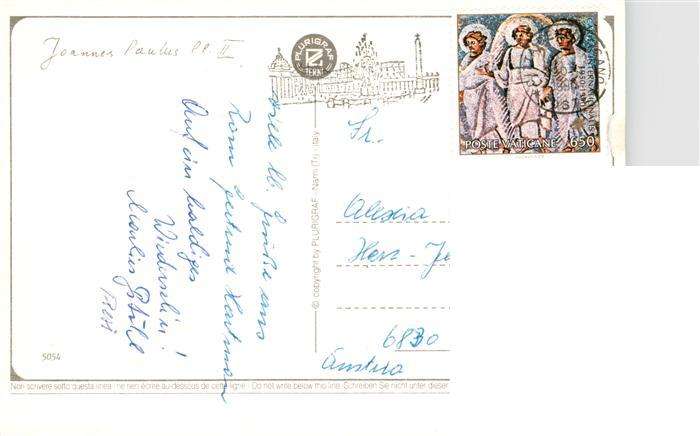 Joannes Paulus PP. II
PLURIGRAF
TERNI
POSTE VATICANE 650
Viele lb. Grüße aus
Rom Gertrud Hartmann
Auf ein baldiges
Wiedersehn!
© copyright by PLURIGRAF - Narni (Tr) - Italy
Sr.
Alexia
Herz - Je
6830
Austria
5054
Non scrivere sotto questa linea - ne rien écrire au-dessous de cette ligne - Do not write below this line. Schreiben Sie nicht unter dieser